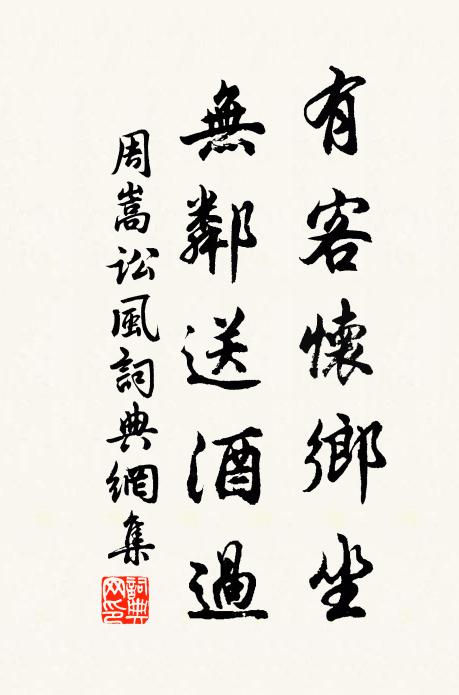 有客懷鄉坐
無鄰送酒過
周嵩訟風詞典網集
詞典網印